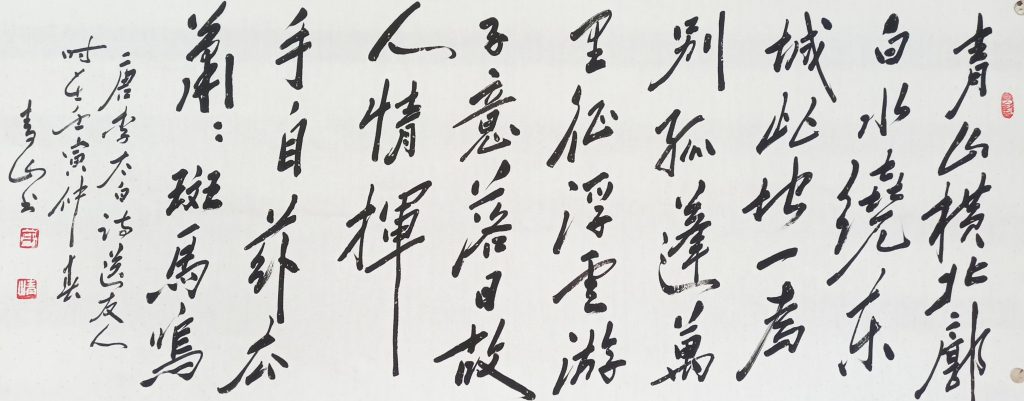 青山横北廓
白水繞东
城此地一为
别孤蓬萬
里征浮雲游
子意落日故
人情揮
手自兹去
萧：斑馬鳴
唐李太白诗送友人
时在壬寅仲春
青山书